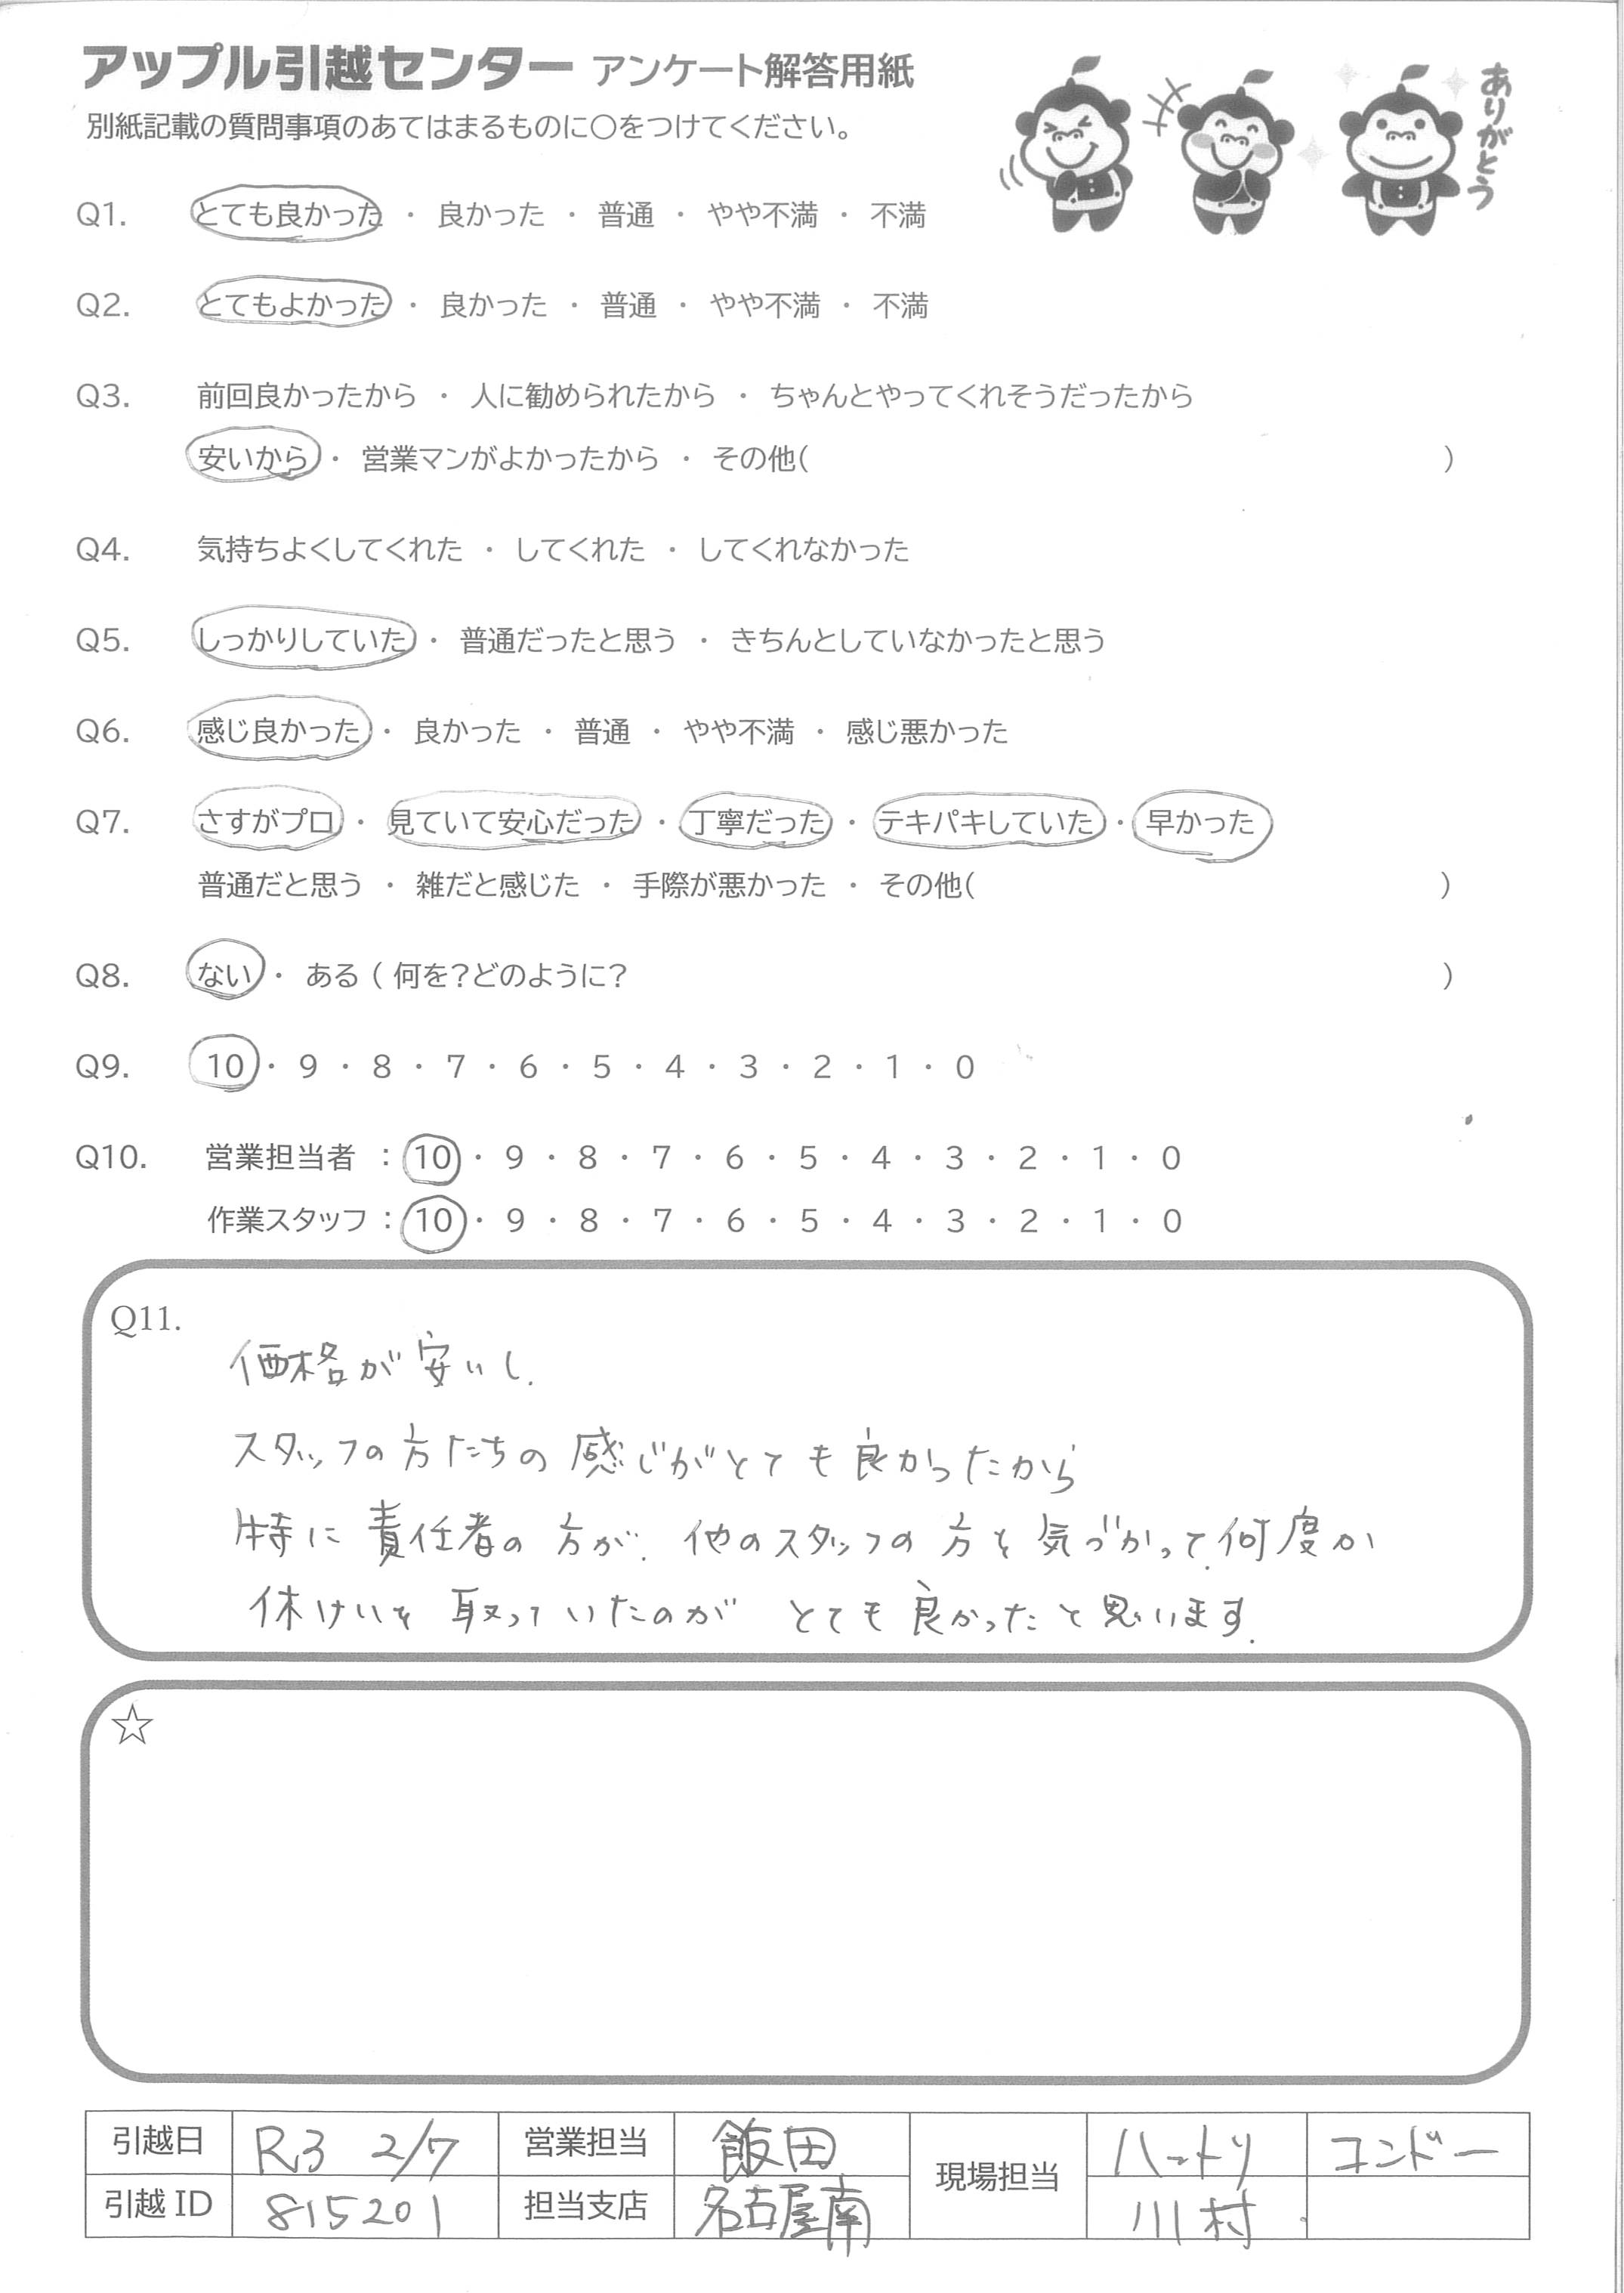 アップル引越センター アンケート解答用紙
別紙記載の質問事項のあてはまるものに〇をつけてください。
ありがとう
Q1. とても良かった ・ 良かった ・ 普通 ・ やや不満 ・ 不満
Q2. とてもよかった ・ 良かった ・ 普通 ・ やや不満 ・ 不満
Q3. 前回良かったから ・ 人に勧められたから ・ ちゃんとやってくれそうだったから
安いから ・ 営業マンがよかったから ・ その他( )
Q4. 気持ちよくしてくれた ・ してくれた ・ してくれなかった
Q5. しっかりしていた ・ 普通だったと思う ・ きちんとしていなかったと思う
Q6. 感じ良かった ・ 良かった ・ 普通 ・ やや不満 ・ 感じ悪かった
Q7. さすがプロ ・ 見ていて安心だった ・ 丁寧だった ・ テキパキしていた ・ 早かった
普通だと思う ・ 雑だと感じた ・ 手際が悪かった ・ その他( )
Q8. ない ・ ある ( 何を?どのように? )
Q9. 10 ・ 9 ・ 8 ・ 7 ・ 6 ・ 5 ・ 4 ・ 3 ・ 2 ・ 1 ・ 0
Q10. 営業担当者 : 10 ・ 9 ・ 8 ・ 7 ・ 6 ・ 5 ・ 4 ・ 3 ・ 2 ・ 1 ・ 0
作業スタッフ : 10 ・ 9 ・ 8 ・ 7 ・ 6 ・ 5 ・ 4 ・ 3 ・ 2 ・ 1 ・ 0
Q11.
価格が安いし、
スタッフの方たちの感じがとても良かったから
特に責任者の方が、他のスタッフの方を気づかって、何度か
休けいを取っていたのが とても良かったと思います。
☆
引越日 R3 2/7 営業担当 飯田 現場担当 ハットリ コンドー
引越ID 815201 担当支店 名古屋南 川村